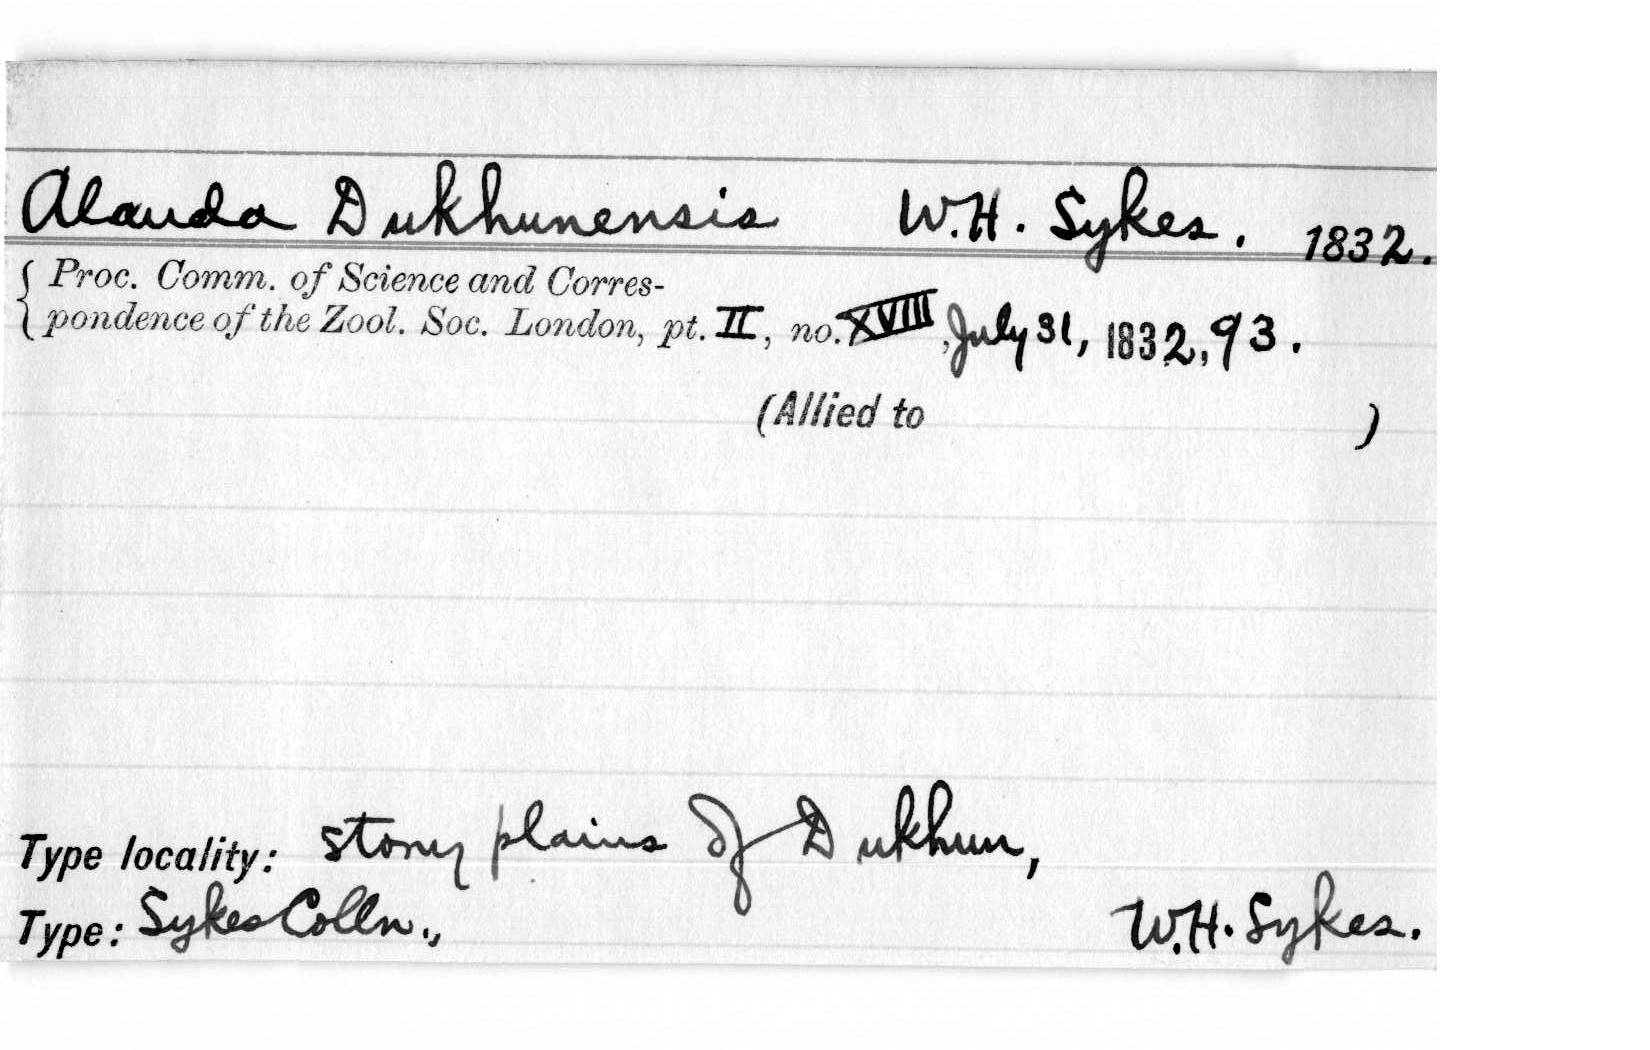 Alauda Dukhunensis W.H. Sykes. 1832.
{ Proc. Comm. of Science and Corres-
pondence of the Zool. Soc. London, pt. II, no. XVIII, July 31, 1832, 93.
(Allied to )
Type locality: stony plains of Dukhun,
Type: Sykes Colln., W.H. Sykes.